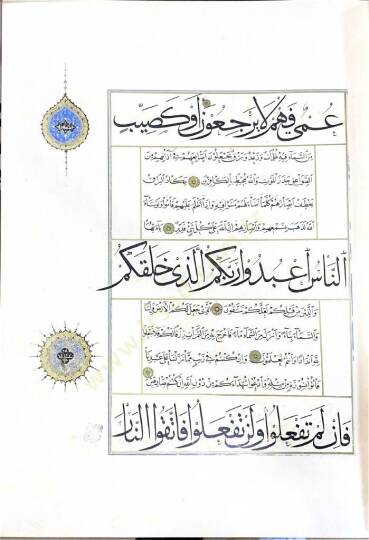 عمي فهم لا يرجعون او كصيب
من السماء فيه ظلمات ورعد وبرق يجعلون اصابعهم في اذانهم من
الصواعق حذر الموت والله محيط بالكافرين يكاد البرق
يخطف ابصارهم كلما اضاء لهم مشوا فيه واذا اظلم عليهم قاموا ولو شاء
الله لذهب بسمعهم وابصارهم ان الله على كل شيء قدير يا ايها
الناس اعبدوا ربكم الذي خلقكم
والذين من قبلكم لعلكم تتقون الذي جعل لكم الارض فراشا
والسماء بناء وانزل من السماء ماء فاخرج به من الثمرات رزقا لكم فلا تجعلوا
لله اندادا وانتم تعلمون وان كنتم في ريب مما نزلنا على عبدنا
فاتوا بسورة من مثله وادعوا شهداءكم من دون الله ان كنتم صادقين
فان لم تفعلوا ولن تفعلوا فاتقوا النار